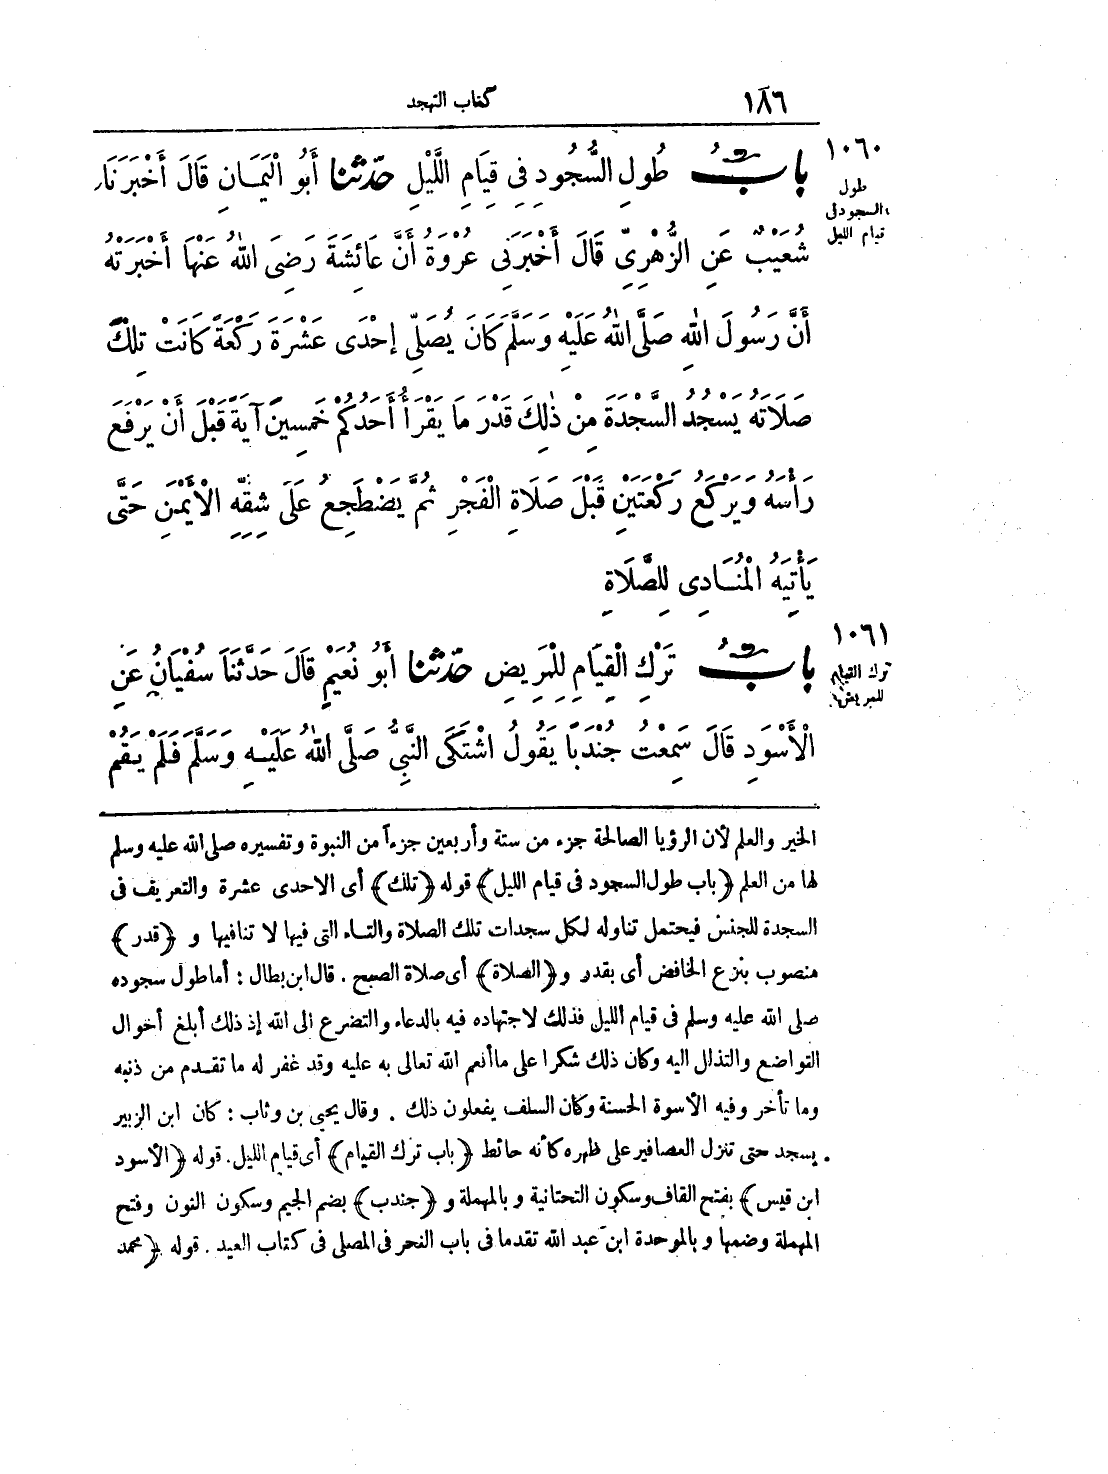 ١٨٦ كتاب التهجد
١٠٦٠
طول
السجود فى
قيام الليل
بابُ طُولِ السُّجُودِ فِي قِيَامِ اللَّيْلِ حدّثنا أَبُو الْيَمَانِ قَالَ أَخْبَرَنَا
شُعَيْبٌ عَنِ الزُّهْرِىِّ قَالَ أَخْبَرَنِى عُرْوَةُ أَنَّ عَائِشَةَ رَضِىَ اللهُ عَنْهَا أَخْبَرَتْهُ
أَنَّ رَسُولَ اللهِ صَلَّى اللهُ عَلَيْهِ وَسَلَّمَ كَانَ يُصَلِّى إِحْدَى عَشْرَةَ رَكْعَةً كَانَتْ تِلْكَ
صَلَاتَهُ يَسْجُدُ السَّجْدَةَ مِنْ ذٰلِكَ قَدْرَ مَا يَقْرَأُ أَحَدُكُمْ خَمْسِينَ آيَةً قَبْلَ أَنْ يَرْفَعَ
رَأْسَهُ وَيَرْكَعُ رَكْعَتَيْنِ قَبْلَ صَلَاةِ الْفَجْرِ ثُمَّ يَضْطَجِعُ عَلَى شِقِّهِ الْأَيْمَنِ حَتَّى
يَأْتِيَهُ الْمُنَادِى لِلصَّلَاةِ
١٠٦١
ترك القيام
للمريض
بابُ تَرْكِ الْقِيَامِ لِلْمَرِيضِ حدّثنا أَبُو نُعَيْمٍ قَالَ حَدَّثَنَا سُفْيَانُ عَنِ
الْأَسْوَدِ قَالَ سَمِعْتُ جُنْدَبًا يَقُولُ اشْتَكَى النَّبِىُّ صَلَّى اللهُ عَلَيْهِ وَسَلَّمَ فَلَمْ يَقُمْ
الخير والعلم لأن الرؤيا الصالحة جزء من ستة وأربعين جزءا من النبوة وتفسيره صلى الله عليه وسلم
لها من العلم ﴿باب طول السجود فى قيام الليل﴾ قوله ﴿تلك﴾ أى الاحدى عشرة والتعريف فى
السجدة للجنس فيحتمل تناوله لكل سجدات تلك الصلاة والتاء التى فيها لا تنافيها و ﴿قدر﴾
منصوب بنزع الخافض أى بقدر و﴿الصلاة﴾ أى صلاة الصبح . قال ابن بطال : أما طول سجوده
صلى الله عليه وسلم فى قيام الليل فذلك لاجتهاده فيه بالدعاء والتضرع الى الله إذ ذلك أبلغ أحوال
التواضع والتذلل اليه وكان ذلك شكرا على ما أنعم الله تعالى به عليه وقد غفر له ما تقدم من ذنبه
وما تأخر وفيه الأسوة الحسنة وكان السلف يفعلون ذلك . وقال يحيى بن وثاب : كان ابن الزبير
يسجد حتى تنزل العصافير على ظهره كأنه حائط ﴿باب ترك القيام﴾ أى قيام الليل. قوله ﴿الأسود
ابن قيس﴾ بفتح القاف وسكون التحتانية و بالمهملة و ﴿جندب﴾ بضم الجيم وسكون النون وفتح
المهملة وضمها و بالموحدة ابن عبد الله تقدما فى باب النحر فى المصلى فى كتاب العيد . قوله ﴿محمد